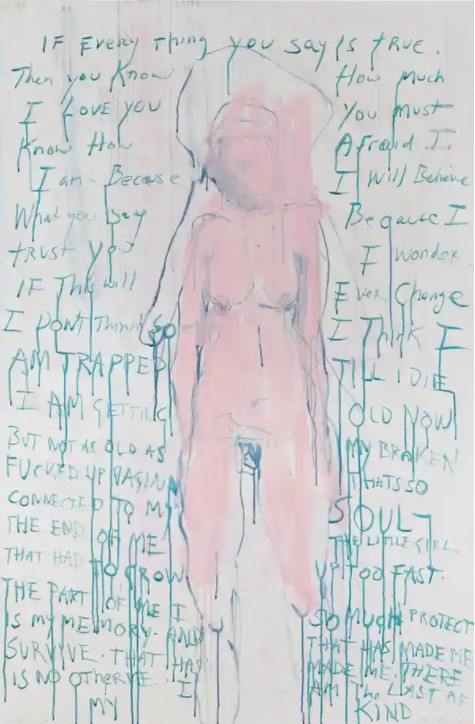 IF Every Thing you say is true.
Then you Know How much
I Love you You must
Know How Afraid I
I am - Because I will Believe
What you say Because I
trust you I wonder
IF This will Ever Change
I Dont Think so I Think I
AM TRAPPED TILL I DIE
I AM GETTING OLD NOW
BUT NOT AS OLD AS MY BROKEN
FUCKED UP VAGINA THATS SO
CONNECTED TO MY SOUL
THE END OF ME THE LITTLE GIRL
THAT HAD TO GROW UP TOO FAST.
THE PART OF ME I SO MUCH PROTECT
IS MY MEMORY. AND THAT HAS MADE ME
SURVIVE. THAT HAS MADE ME. THERE
IS NO I AM The LAST OF
MY KIND